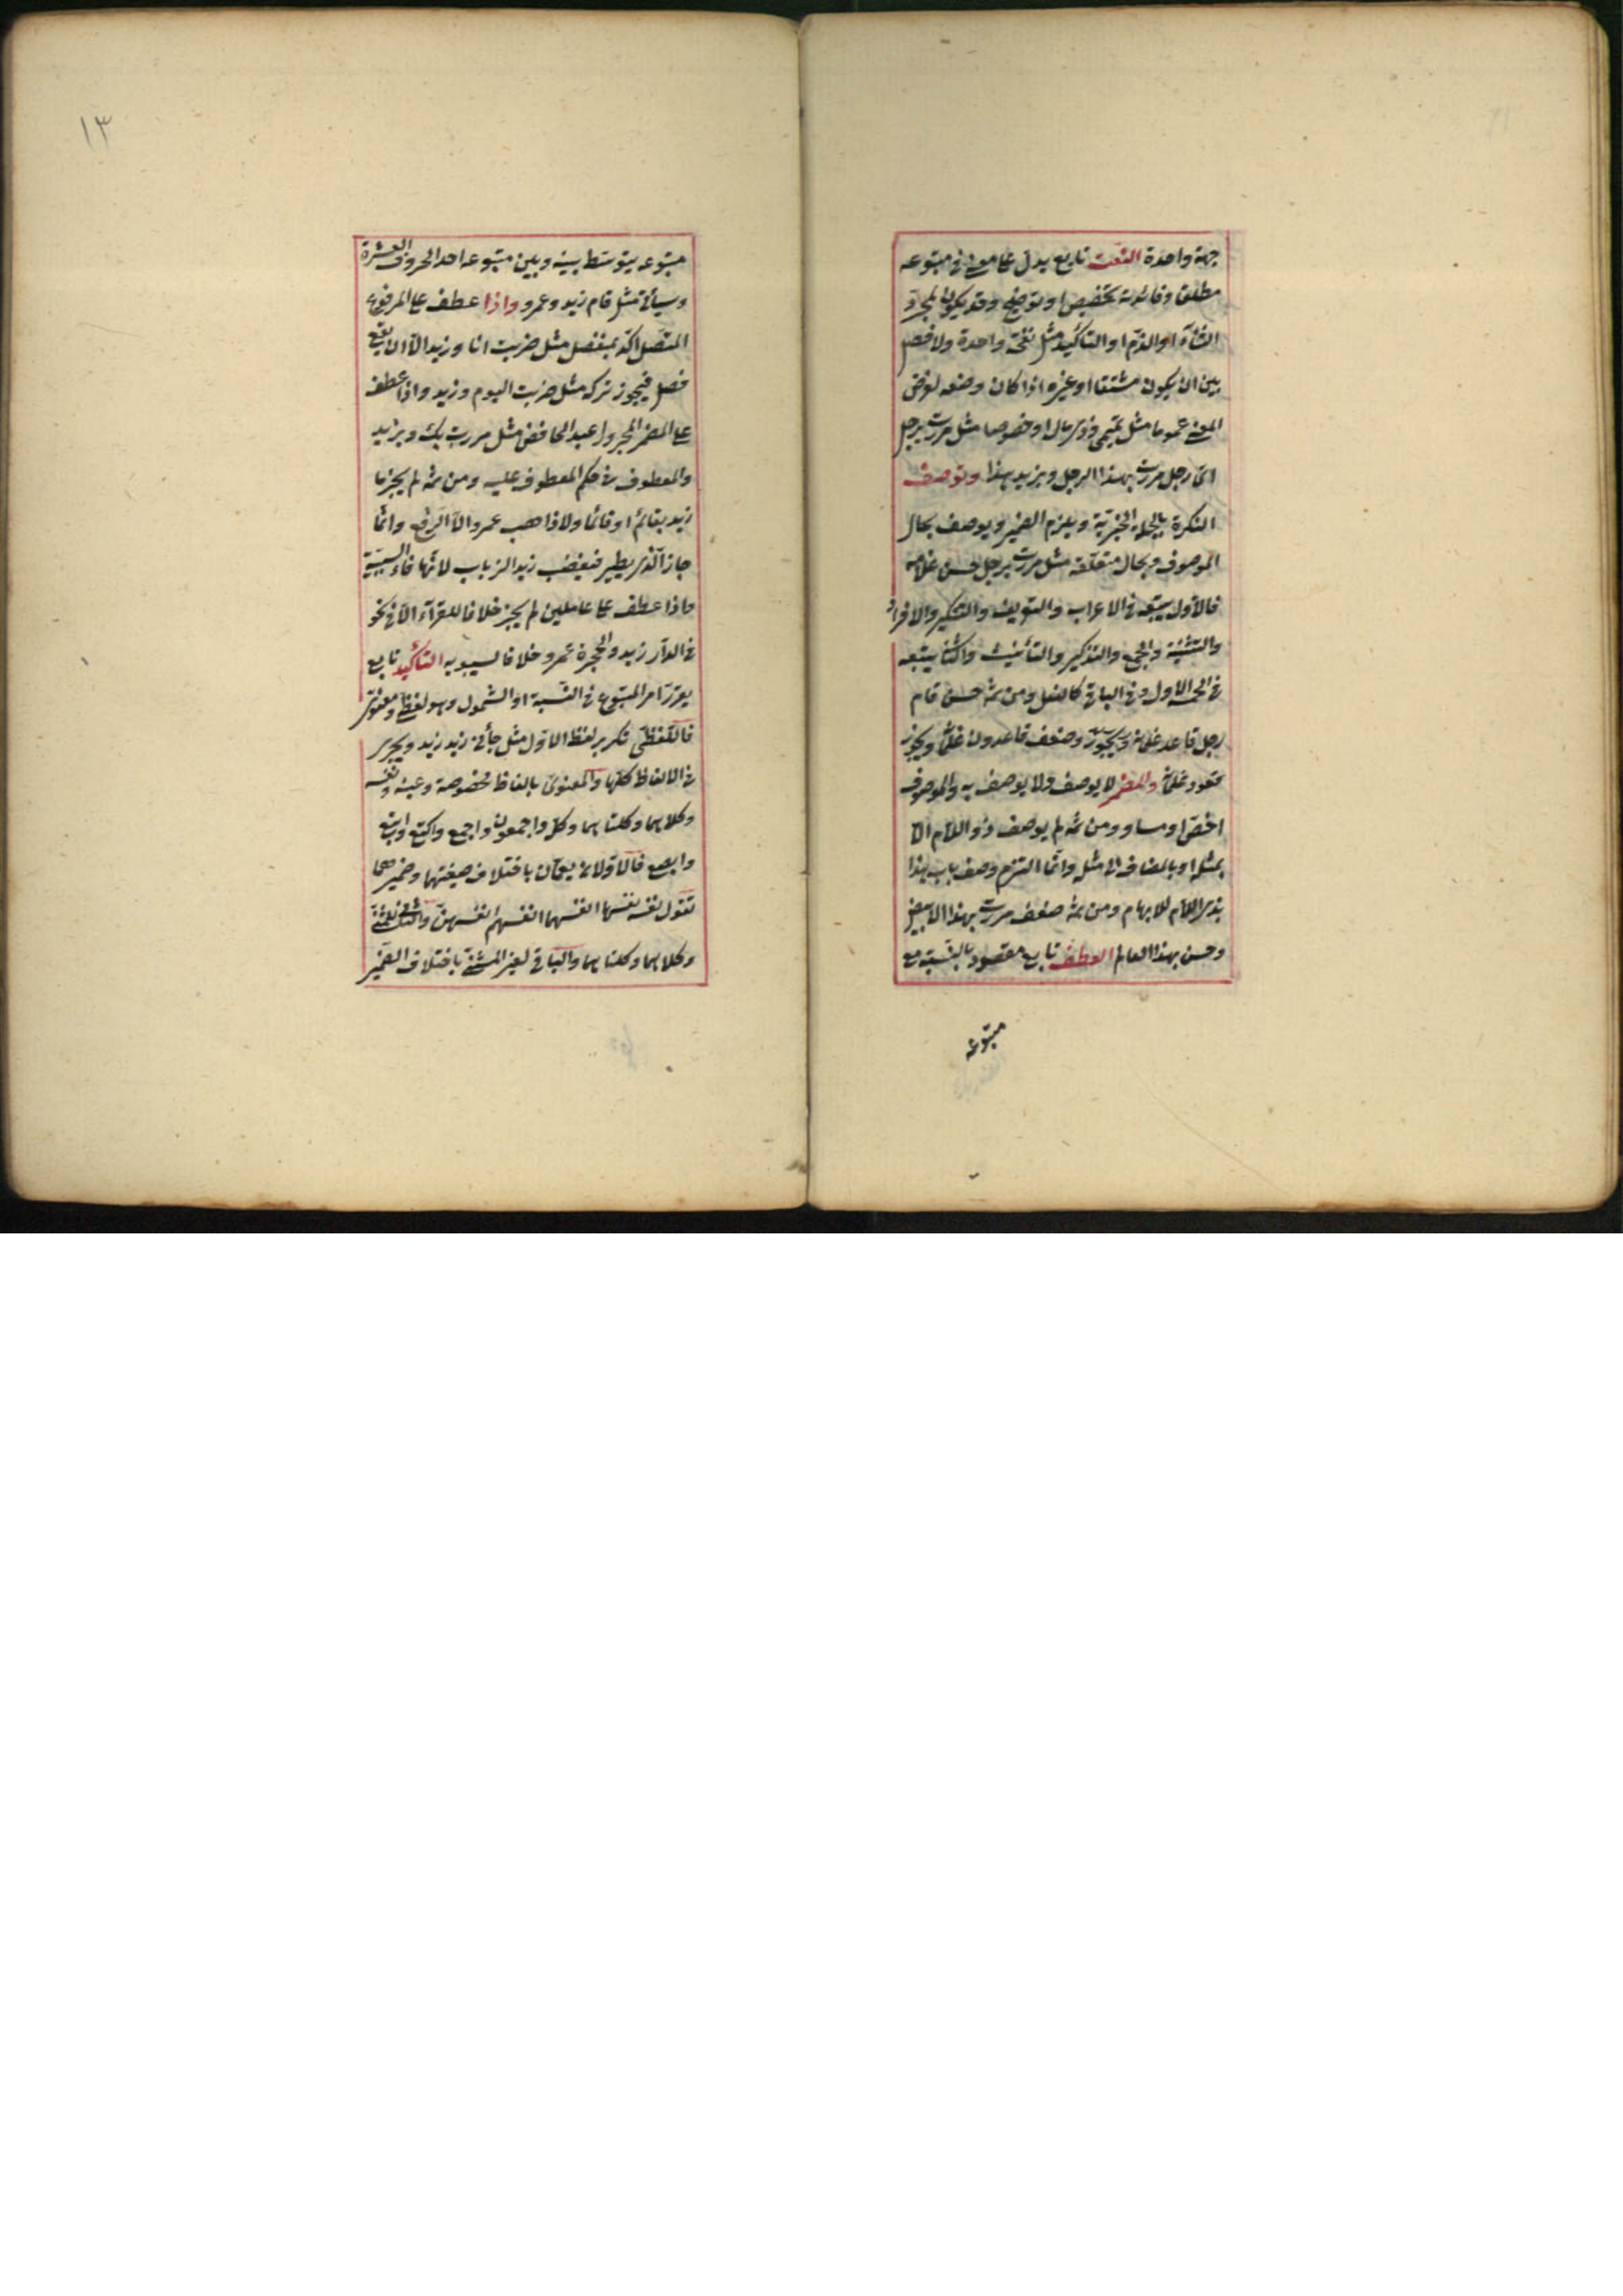 جهة واحدة النعت تابع يدل على معنى فى متبوعه
مطلقا وفائدته تخصيص او توضيح وقد يكون لمجرد
الثناء او الذم او التأكيد مثل نفخة واحدة ولا فصل
بين ان يكون مشتقا او غيره اذا كان وضعه لغرض
المعنى عموما مثل تميمى وذى مال او خصوصا مثل مررت برجل
اى رجل مررت بهذا الرجل وبزيد هذا وتوصف
النكرة بالجملة الخبرية ويلزم الضمير ويوصف بحال
الموصوف وبحال متعلقه مثل مررت برجل حسن غلامه
فالاول يتبعه فى الاعراب والتعريف والتنكير والافراد
والتثنية والجمع والتذكير والتأنيث والثانى يتبعه
فى الخمسة الاول وفى الباقى كالفعل ومن ثمه حسن قام
رجل قاعد غلمانه ويجوز وضعف قاعدون غلمانه ويجوز
قعود غلمانه والمضمر لا يوصف ولا يوصف به والموصوف
اخص او مساو ومن ثمه لم يوصف ذو اللام الا
بمثله او بالمضاف الى مثله وانما التزم وصف باب هذا
بذى اللام للابهام ومن ثمه ضعف مررت بهذا الابيض
وحسن بهذا العالم العطف تابع مقصود بالنسبة مع
متبوعه
١٣
متبوعه يتوسط بينه وبين متبوعه احد الحروف العشرة
وسيأتى مثل قام زيد وعمرو واذا عطف على المرفوع
المتصل اكد بمنفصل مثل ضربت انا وزيد الا ان يقع
فصل فيجوز تركه مثل ضربت اليوم وزيد واذا عطف
على المضمر المجرور اعيد الخافض مثل مررت بك وبزيد
والمعطوف فى حكم المعطوف عليه ومن ثمه لم يجز ما
زيد بقائم او قائما ولا ذاهب عمرو الا الرفع وانما
جاز الذى يطير فيغضب زيد الذباب لانها فاء السببية
واذا عطف على عاملين لم يجز خلافا للفراء الا فى نحو
فى الدار زيد والحجرة عمرو خلافا لسيبويه التأكيد تابع
يقرر امر المتبوع فى النسبة او الشمول وهو لفظى ومعنوى
فاللفظى تكرير لفظ الاول مثل جاءنى زيد زيد ويجرى
فى الالفاظ كلها والمعنوى بالفاظ مخصوصة وعينه ونفسه
وكلاهما وكلتاهما وكل واجمعون واجمع واكتع وابتع
وابصع فالاولان يعمان باختلاف صيغتهما وضميرهما
تقول نفسه نفسها انفسهما انفسهم انفسهن والثانى للمثنى
وكلاهما وكلتاهما والباقى لغير المثنى باختلاف الضمير